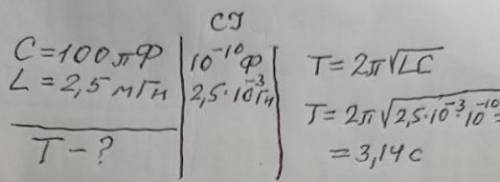 СИ
C = 100 пФ
L = 2,5 мГн
T - ?
10⁻¹⁰ Ф
2,5·10⁻³ Гн
T = 2π√LC
T = 2π√2,5·10⁻³·10⁻¹⁰ =
= 3,14 с